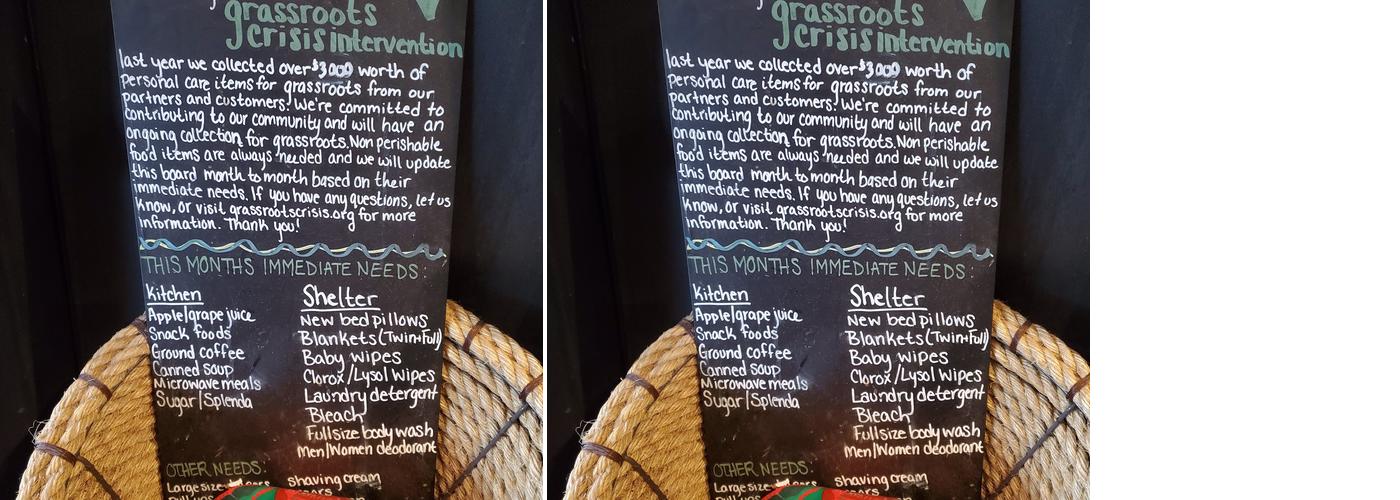 grassroots
crisis intervention
last year we collected over $3000 worth of
personal care items for grassroots from our
partners and customers. We're committed to
contributing to our community and will have an
ongoing collection for grassroots. Non perishable
food items are always needed and we will update
this board month to month based on their
immediate needs. If you have any questions, let us
know, or visit grassrootscrisis.org for more
information. Thank you!
THIS MONTHS IMMEDIATE NEEDS:
Kitchen
Apple/grape juice
Snack foods
Ground coffee
Canned soup
Microwave meals
Sugar/Splenda
Shelter
New bed pillows
Blankets (Twin+Full)
Baby wipes
Clorox/Lysol Wipes
Laundry detergent
Bleach
Fullsize body wash
Men/Women deodorant
OTHER NEEDS:
Large size
Shaving cream
grassroots
crisis intervention
last year we collected over $3000 worth of
personal care items for grassroots from our
partners and customers. We're committed to
contributing to our community and will have an
ongoing collection for grassroots. Non perishable
food items are always needed and we will update
this board month to month based on their
immediate needs. If you have any questions, let us
know, or visit grassrootscrisis.org for more
information. Thank you!
THIS MONTHS IMMEDIATE NEEDS:
Kitchen
Apple/grape juice
Snack foods
Ground coffee
Canned soup
Microwave meals
Sugar/Splenda
Shelter
New bed pillows
Blankets (Twin+Full)
Baby wipes
Clorox/Lysol Wipes
Laundry detergent
Bleach
Fullsize body wash
Men/Women deodorant
OTHER NEEDS:
Large size
Shaving cream